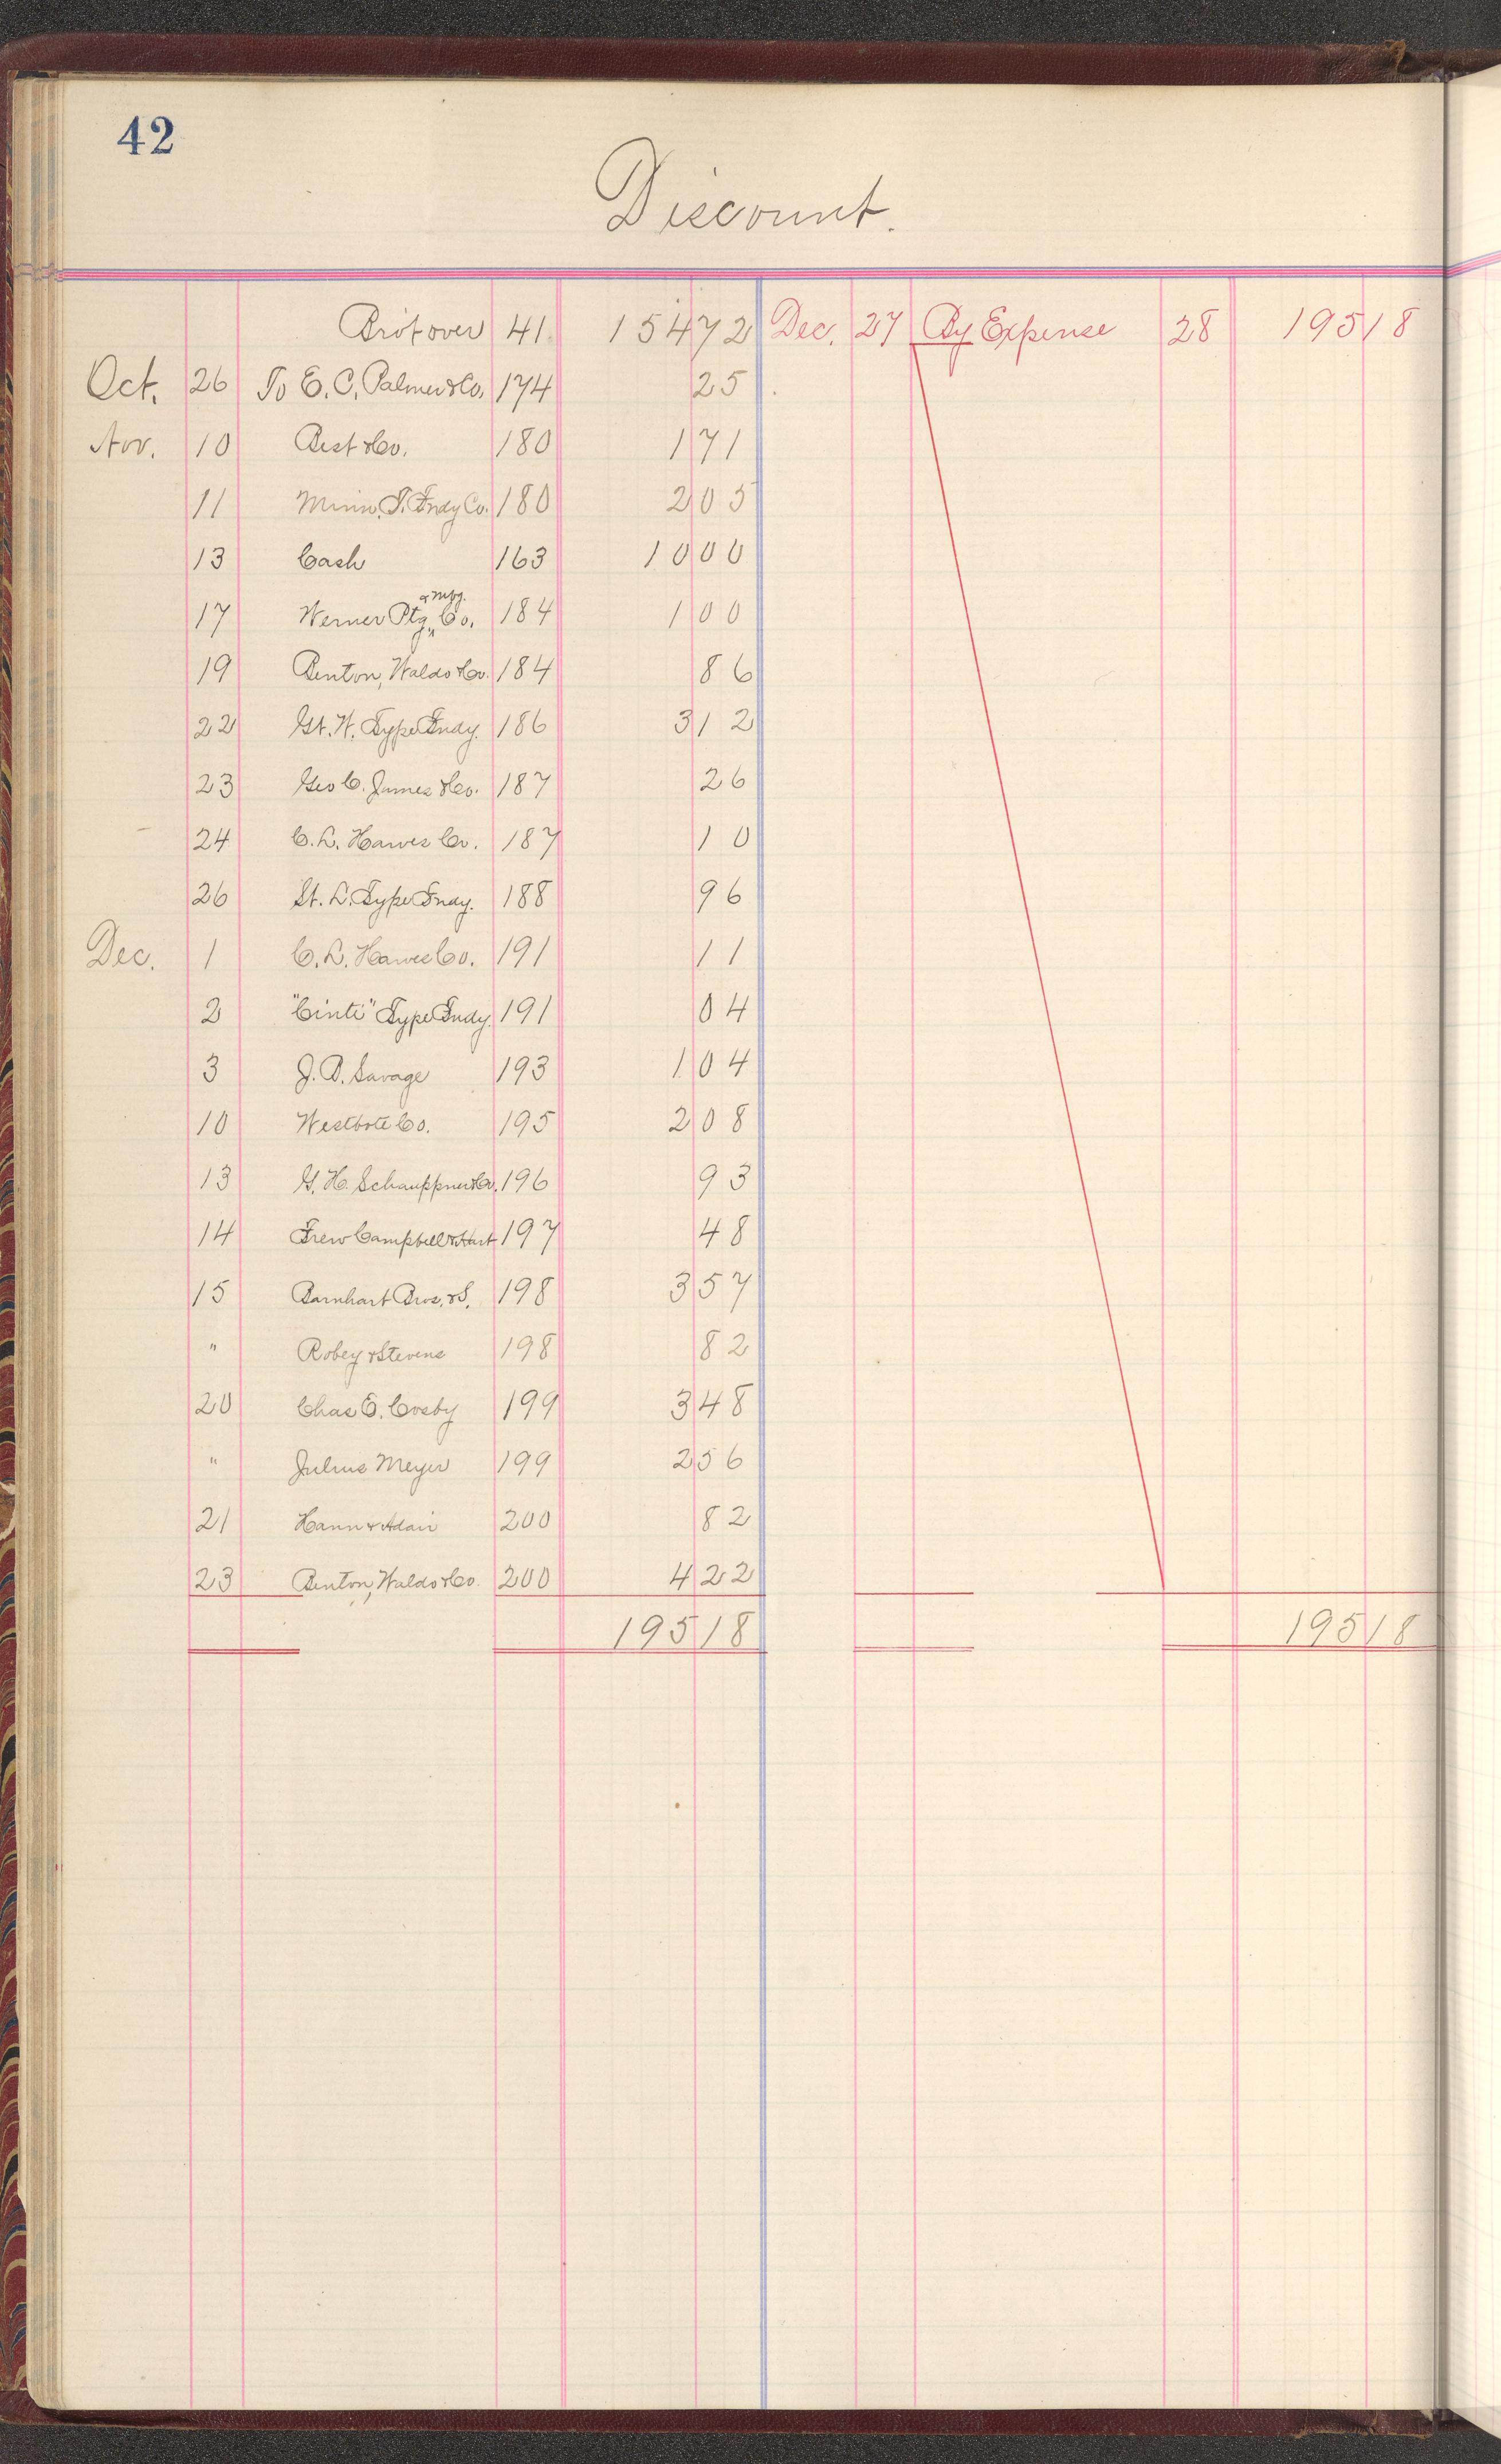 42
Discount.
Bro't over 41 154 72 Dec. 27 By Expense 28 195 18
Oct. 26 To E. C. Palmer & Co. 174 25
Nov. 10 Best & Co. 180 1 71
11 Minn. T. Fndy Co. 180 2 05
13 Cash 163 10 00
& Mfg.
17 Werner Ptg Co. 184 1 00
19 Benton, Waldo & Co. 184 86
22 Gt. W. Type Fndy. 186 3 12
23 Geo C. James & Co. 187 26
24 C. L. Hawes Co. 187 10
26 St. L. Type Fndy. 188 96
Dec. 1 C. L. Hawes Co. 191 11
2 "Cinti" Type Fndy. 191 04
3 J. B. Savage 193 1 04
10 Westbote Co. 195 2 08
13 G. H. Schauppner & Co. 196 93
14 Frew Campbell & Hart 197 48
15 Barnhart Bros. & S. 198 3 57
" Robey & Stevens 198 82
20 Chas E. Cosby 199 3 48
" Julius Meyer 199 2 56
21 Hann & Adair 200 82
23 Benton, Waldo & Co. 200 4 22
195 18 195 18